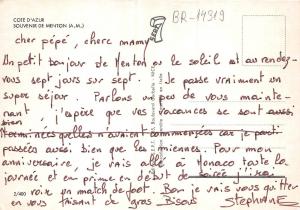 COTE D'AZUR
SOUVENIR DE MENTON (A.M.)
BR-14319
cher pépé, chere mamy
Un petit bonjour de Menton ou le soleil est au rendez-
vous sept jours sur sept. Je passe vraiment un
super séjour. Parlons un peu de vous mainte-
nant, j'espère que vos vacances se sont aussi
terminées quelles n'avaient commencées car je part
passées aussi bien que les miennes. Pour mon
anniversaire, je vais allé à Monaco toute la
journée et en prime en début de soirée j'irai
voir un match de foot. Bon je vais vous quitter
en vous faisant de gros Bisous
Stephane
2/400